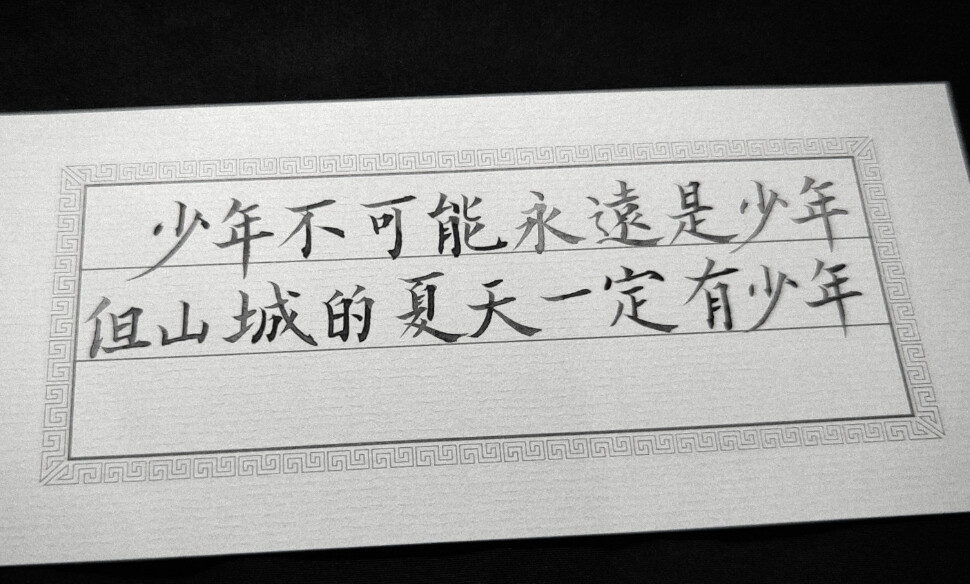 少年不可能永遠是少年
但山城的夏天一定有少年